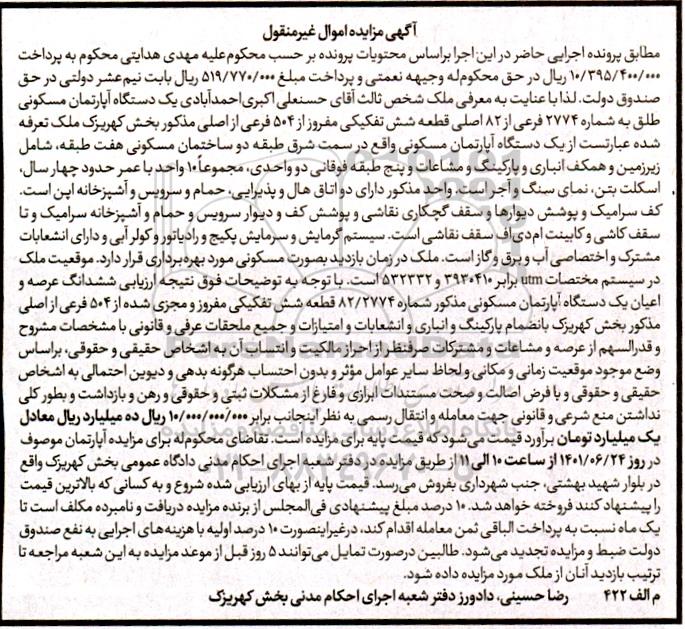 آگهی مزایده اموال غیرمنقول
مطابق پرونده اجرایی حاضر در این اجرا براساس محتویات پرونده بر حسب محکوم‌علیه مهدی هدایتی محکوم به پرداخت
۱۰/۳۹۵/۴۰۰/۰۰۰ ریال در حق محکوم‌له وجیهه نعمتی و پرداخت مبلغ ۵۱۹/۷۷۰/۰۰۰ ریال بابت نیم‌عشر دولتی در حق
صندوق دولت. لذا با عنایت به معرفی ملک شخص ثالث آقای حسنعلی اکبری‌احمدآبادی یک دستگاه آپارتمان مسکونی
طلق به شماره ۲۷۷۴ فرعی از ۸۲ اصلی قطعه شش تفکیکی مفروز از ۵۰۴ فرعی از اصلی مذکور بخش کهریزک ملک تعرفه
شده عبارتست از یک دستگاه آپارتمان مسکونی واقع در سمت شرق طبقه دو ساختمان مسکونی هفت طبقه، شامل
زیرزمین و همکف انباری و پارکینگ و مشاعات و پنج طبقه فوقانی دو واحدی، مجموعاً ۱۰ واحد با عمر حدود چهار سال،
اسکلت بتن، نمای سنگ و آجر است. واحد مذکور دارای دو اتاق هال و پذیرایی، حمام و سرویس و آشپزخانه اپن است.
کف سرامیک و پوشش دیوارها و سقف گچکاری نقاشی و پوشش کف و دیوار سرویس و حمام و آشپزخانه سرامیک و تا
سقف کاشی و کابینت ام‌دی‌اف سقف نقاشی است. سیستم گرمایش و سرمایش پکیج و رادیاتور و کولر آبی و دارای انشعابات
مشترک و اختصاصی آب و برق و گاز است. ملک در زمان بازدید بصورت مسکونی مورد بهره‌برداری قرار دارد. موقعیت ملک
در سیستم مختصات utm برابر ۳۹۳۰۴۱۰ و ۵۳۲۳۳۲ است. با توجه به توضیحات فوق نتیجه ارزیابی ششدانگ عرصه و
اعیان یک دستگاه آپارتمان مسکونی مذکور شماره ۸۲/۲۷۷۴ قطعه شش تفکیکی مفروز و مجزی شده از ۵۰۴ فرعی از اصلی
مذکور بخش کهریزک بانضمام پارکینگ و انباری و انشعابات و امتیازات و جمیع ملحقات عرفی و قانونی با مشخصات مشروح
و قدرالسهم از عرصه و مشاعات و مشترکات صرفنظر از احراز مالکیت و انتساب آن به اشخاص حقیقی و حقوقی، براساس
وضع موجود موقعیت زمانی و مکانی و لحاظ سایر عوامل مؤثر و بدون احتساب هرگونه بدهی و دیون احتمالی به اشخاص
حقیقی و حقوقی و با فرض اصالت و صحت مستندات ابرازی و فارغ از مشکلات ثبتی و حقوقی و رهن و بازداشت و بطور کلی
نداشتن منع شرعی و قانونی جهت معامله و انتقال رسمی به نظر اینجانب برابر ۱۰/۰۰۰/۰۰۰/۰۰۰ ریال ده میلیارد ریال معادل
یک میلیارد تومان برآورد قیمت می‌شود که قیمت پایه برای مزایده است. تقاضای محکوم‌له برای مزایده آپارتمان موصوف
در روز ۱۴۰۱/۰۶/۲۴ از ساعت ۱۰ الی ۱۱ از طریق مزایده در دفتر شعبه اجرای احکام مدنی دادگاه عمومی بخش کهریزک واقع
در بلوار شهید بهشتی، جنب شهرداری بفروش می‌رسد. قیمت پایه از بهای ارزیابی شده شروع و به کسانی که بالاترین قیمت
را پیشنهاد کنند فروخته خواهد شد. ۱۰ درصد مبلغ پیشنهادی فی‌المجلس از برنده مزایده دریافت و نامبرده مکلف است تا
یک ماه نسبت به پرداخت الباقی ثمن معامله اقدام کند، درغیراینصورت ۱۰ درصد اولیه با هزینه‌های اجرایی به نفع صندوق
دولت ضبط و مزایده تجدید می‌شود. طالبین درصورت تمایل می‌توانند ۵ روز قبل از موعد مزایده به این شعبه مراجعه تا
ترتیب بازدید آنان از ملک مورد مزایده داده شود.
م الف ۴۲۲ رضا حسینی، دادورز دفتر شعبه اجرای احکام مدنی بخش کهریزک